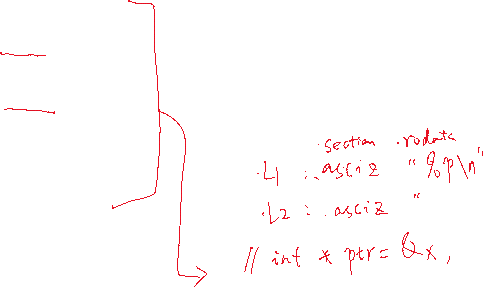 .section .rodata
.L1 : .asciz "%p\n"
.L2 : .asciz "
// int * ptr = &x,